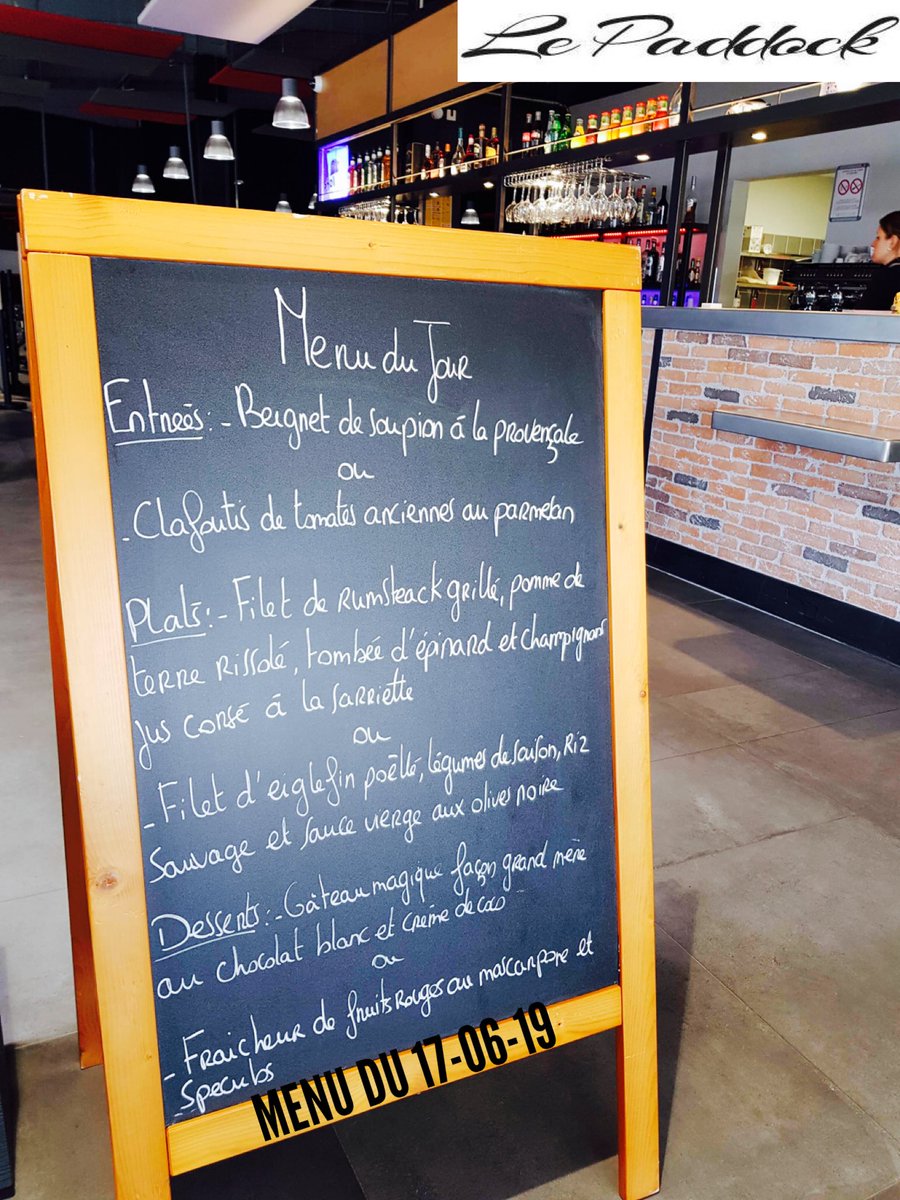 Le Paddock
Menu du Jour
Entrées: - Beignet de soupion à la provençale
ou
- Clafoutis de tomates anciennes au parmesan
Plats: - Filet de Rumsteack grillé, pomme de
terre rissolé, tombée d'épinard et champignons
jus corsé à la sarriette
ou
- Filet d'eiglefin poêllé, légumes de saison, Riz
Sauvage et sauce vierge aux olives noire
Desserts: - Gâteau magique façon grand mère
au chocolat blanc et crème de caco
ou
- Fraicheur de fruits Rouges au mascarpone et
- Speculos
MENU DU 17-06-19